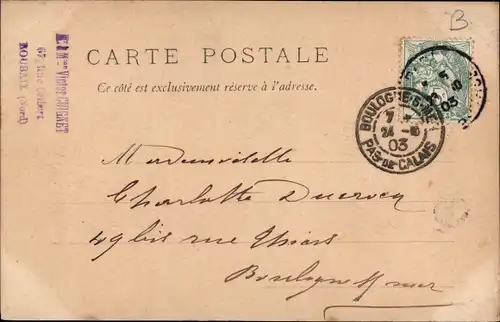 B
CARTE POSTALE
Ce côté est exclusivement réservé à l'adresse.
Mon Victor
67, Rue
ROUBAIX (Nord)
BOULOGNE-S-MER
7
24 -6
03
PAS-DE-CALAIS
03
Mademoiselle
Charlotte Ducrocq
49 bis rue Thiers
Boulogne s/ mer